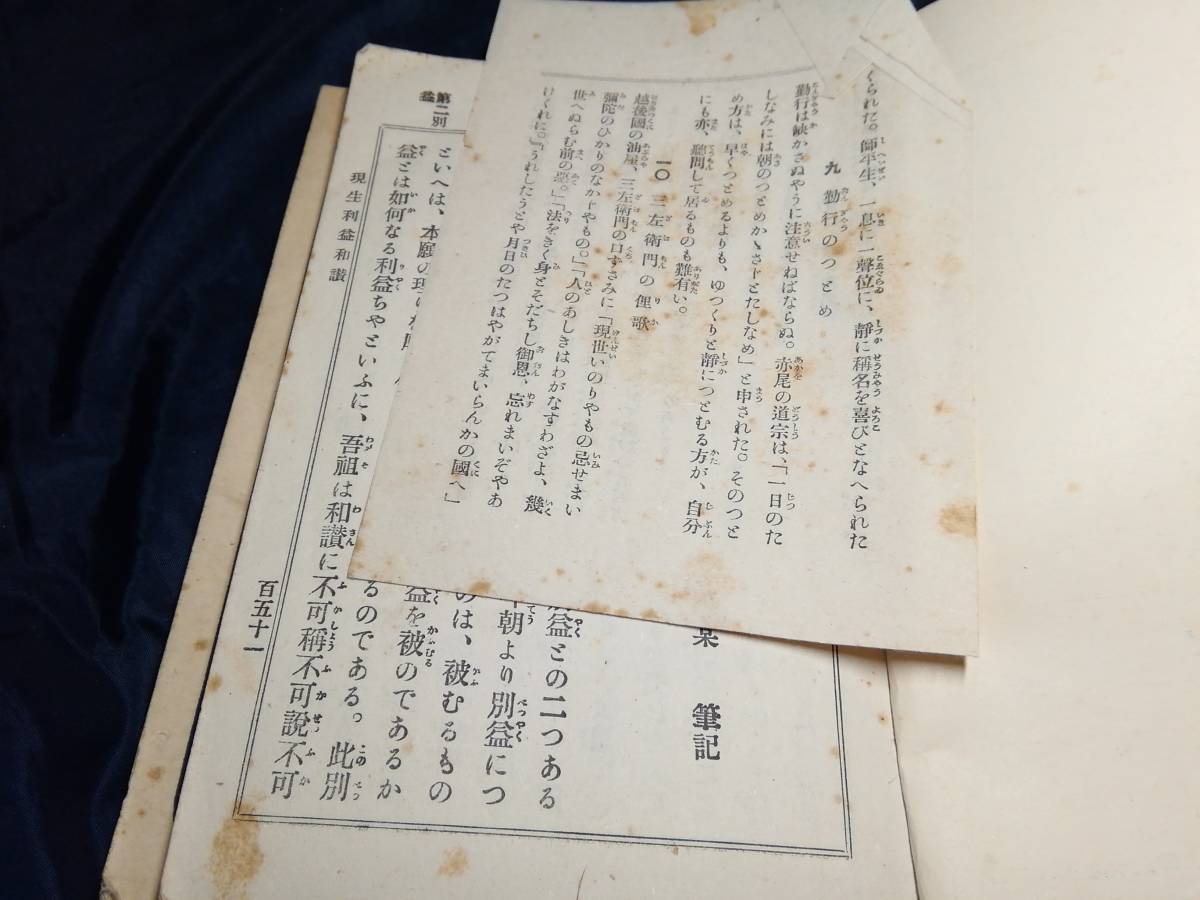 くられた。師平生、一息に一聲位に、靜に稱名を喜びとなへられた
九 勤行のつとめ
勤行は缺かさぬやうに注意せねばならぬ。赤尾の道宗は、「一日のた
しなみには朝のつとめかゝさじとたしなめ」と申された。そのつと
め方は、早くつとめるよりも、ゆつくりと靜につとむる方が、自分
にも亦、聽聞して居るものも難有い。
一〇 三左衛門の俚歌
越後國の油屋、三左衛門の口ずさみに「現世いのりやもの忌せまい
彌陀のひかりのなかぢやもの。」「人のあしきはわがなすわざよ、幾
世へぬらむ前の惡。」「法をきく身とそだちし御恩、忘れまいぞやあ
けくれに。」「うれしたうとや月日のたつはやがてまいらんかの國へ」
筆記
益との二つある
朝より別益につ
のは、被むるもの
益を被のであるか
るのである。此別
といへは、本願の
益とは如何なる利益ちやといふに、吾祖は和讃に不可稱不可說不可
第二別益
現生利益和讃
百五十一